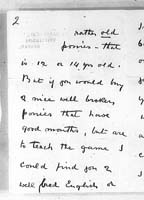 2
rather old
ponies - that
is 12 or 14 yrs old.
But if you would buy
2 nice well broken
ponies that have
good mouths, but are
to teach the game I
could find you 2
well bred English or